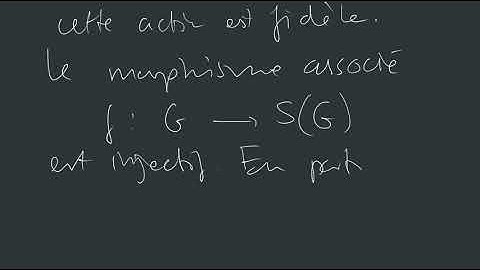 cette action est fidèle.
Le morphisme associé
f : G ⟶ S(G)
est injectif. En part